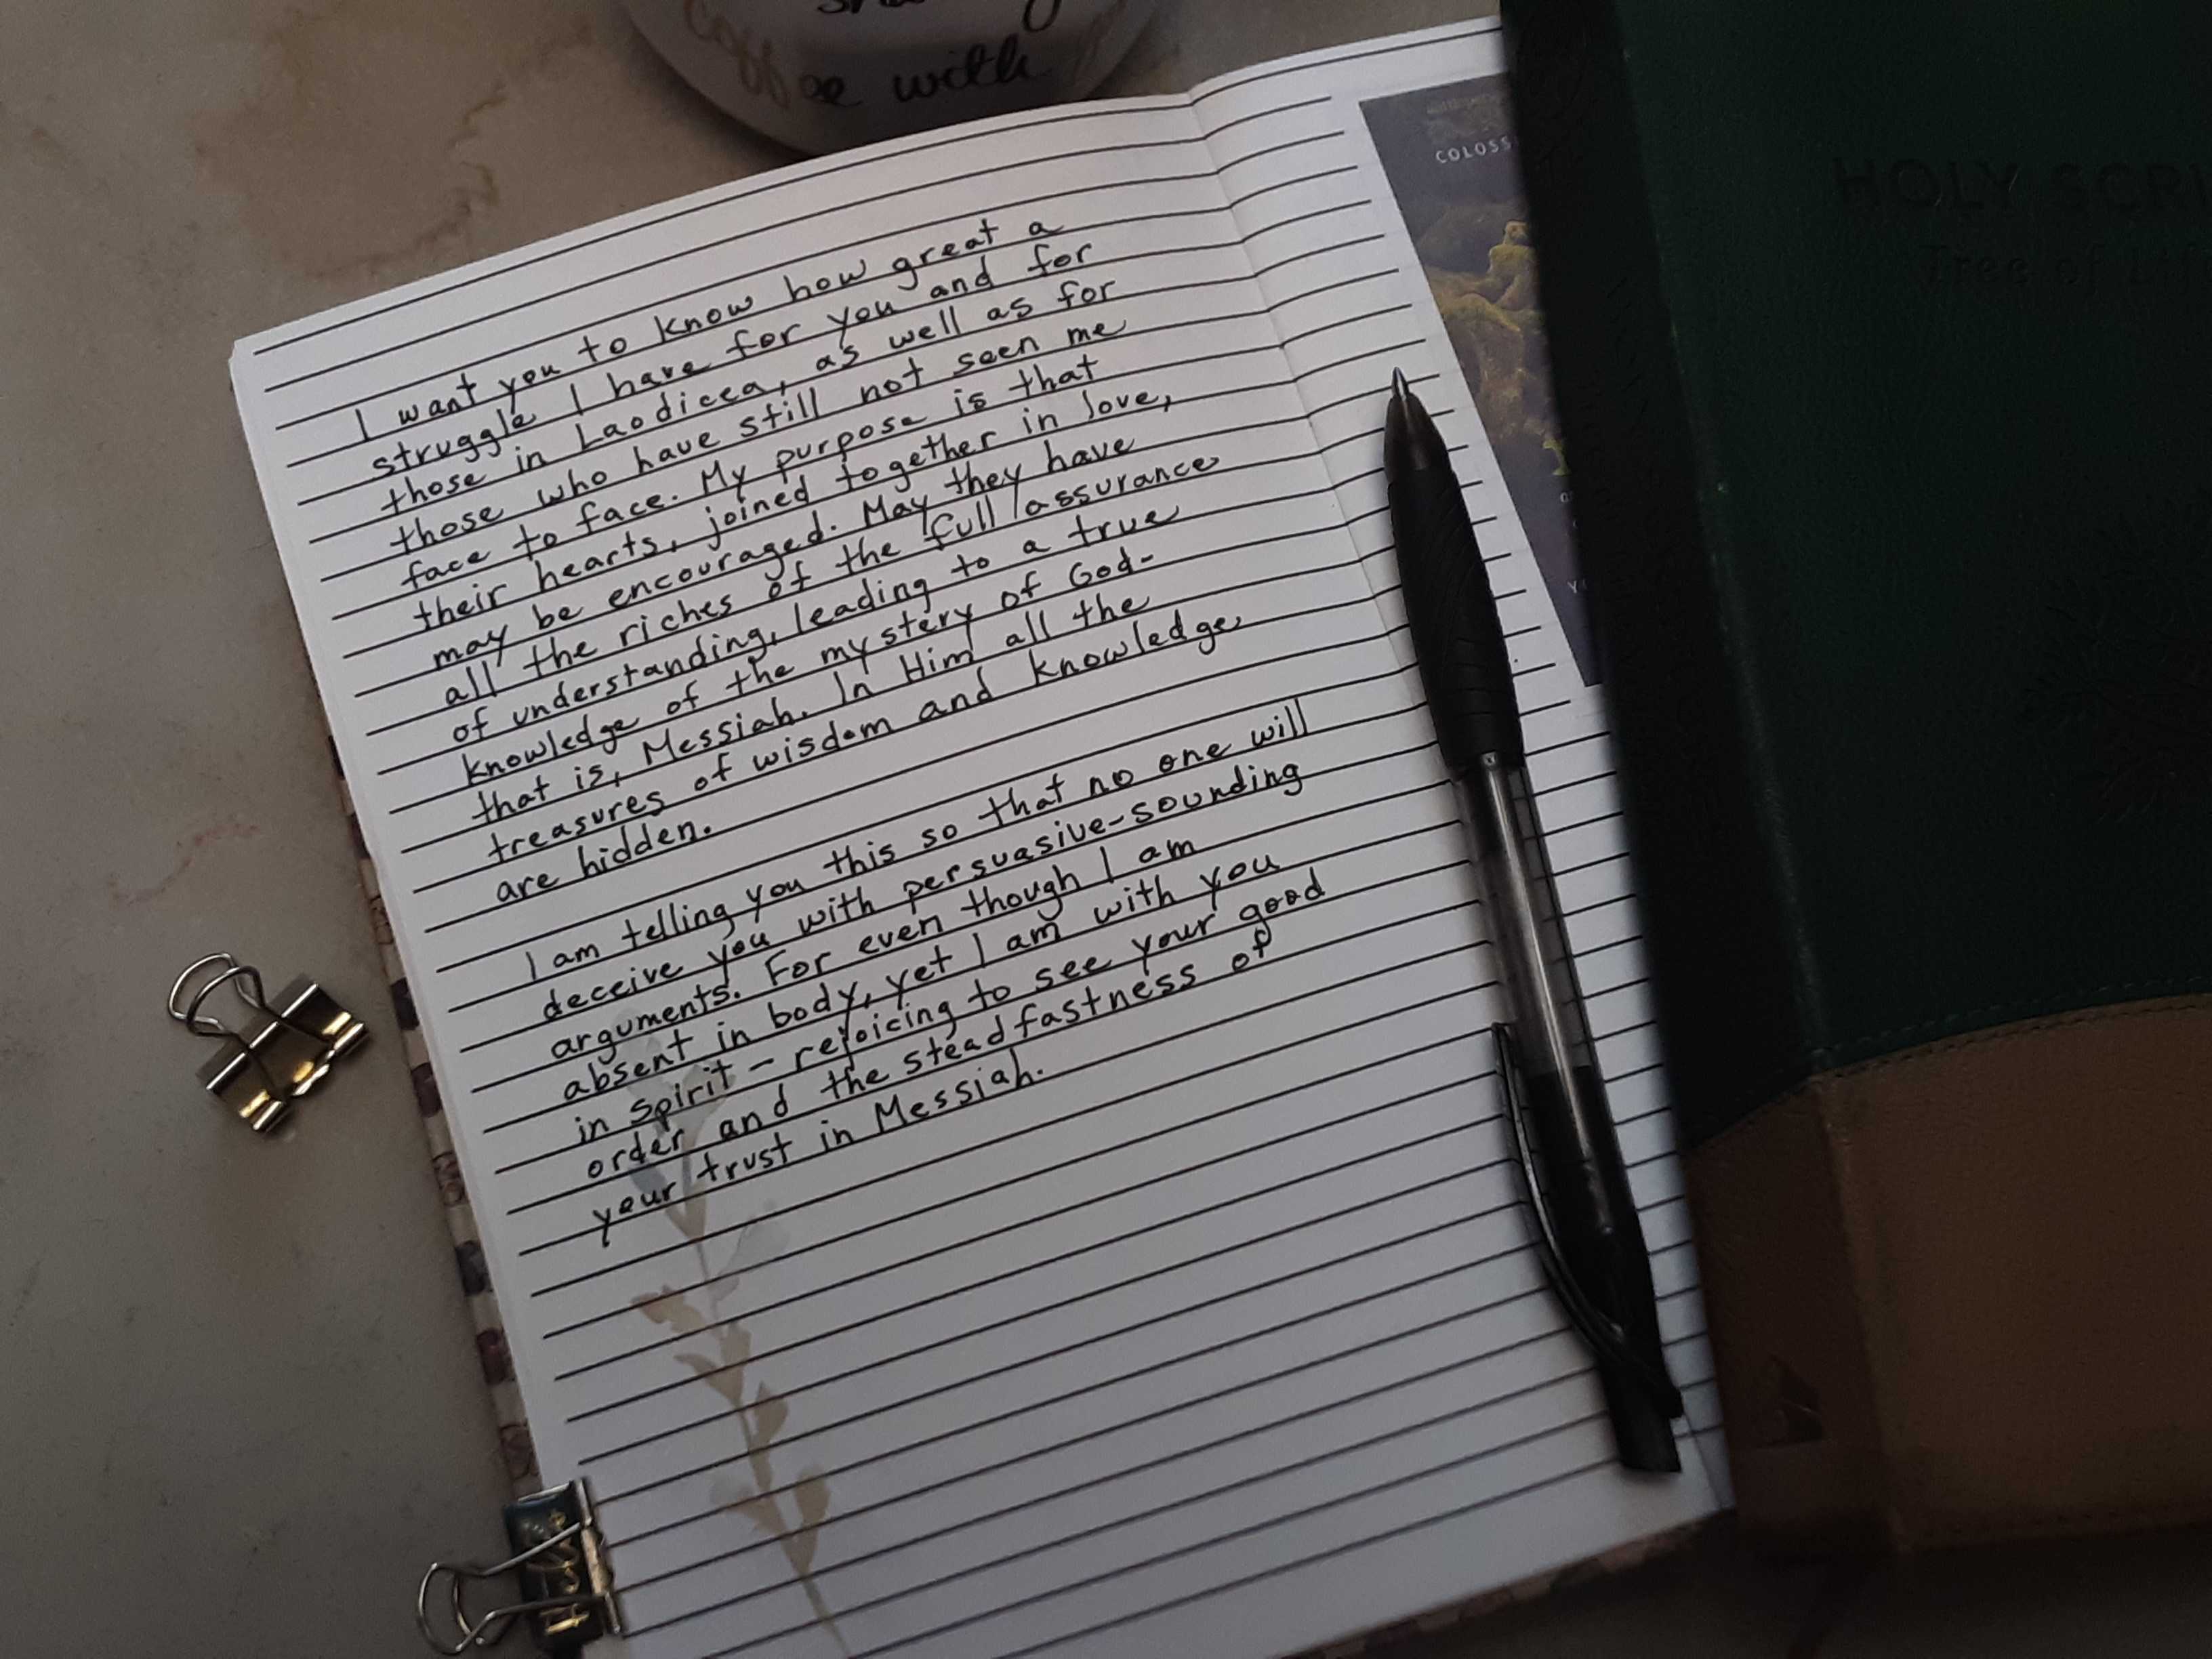 coffee with
COLOSS
HOLY SCRI
Tree of Lif
I want you to know how great a
struggle I have for you and for
those in Laodicea, as well as for
those who have still not seen me
face to face. My purpose is that
their hearts, joined together in love,
may be encouraged. May they have
all the riches of the full assurance
of understanding, leading to a true
knowledge of the mystery of God-
that is, Messiah. In Him all the
treasures of wisdom and knowledge
are hidden.
I am telling you this so that no one will
deceive you with persuasive-sounding
arguments. For even though I am
absent in body, yet I am with you
in spirit - rejoicing to see your good
order and the steadfastness of
your trust in Messiah.